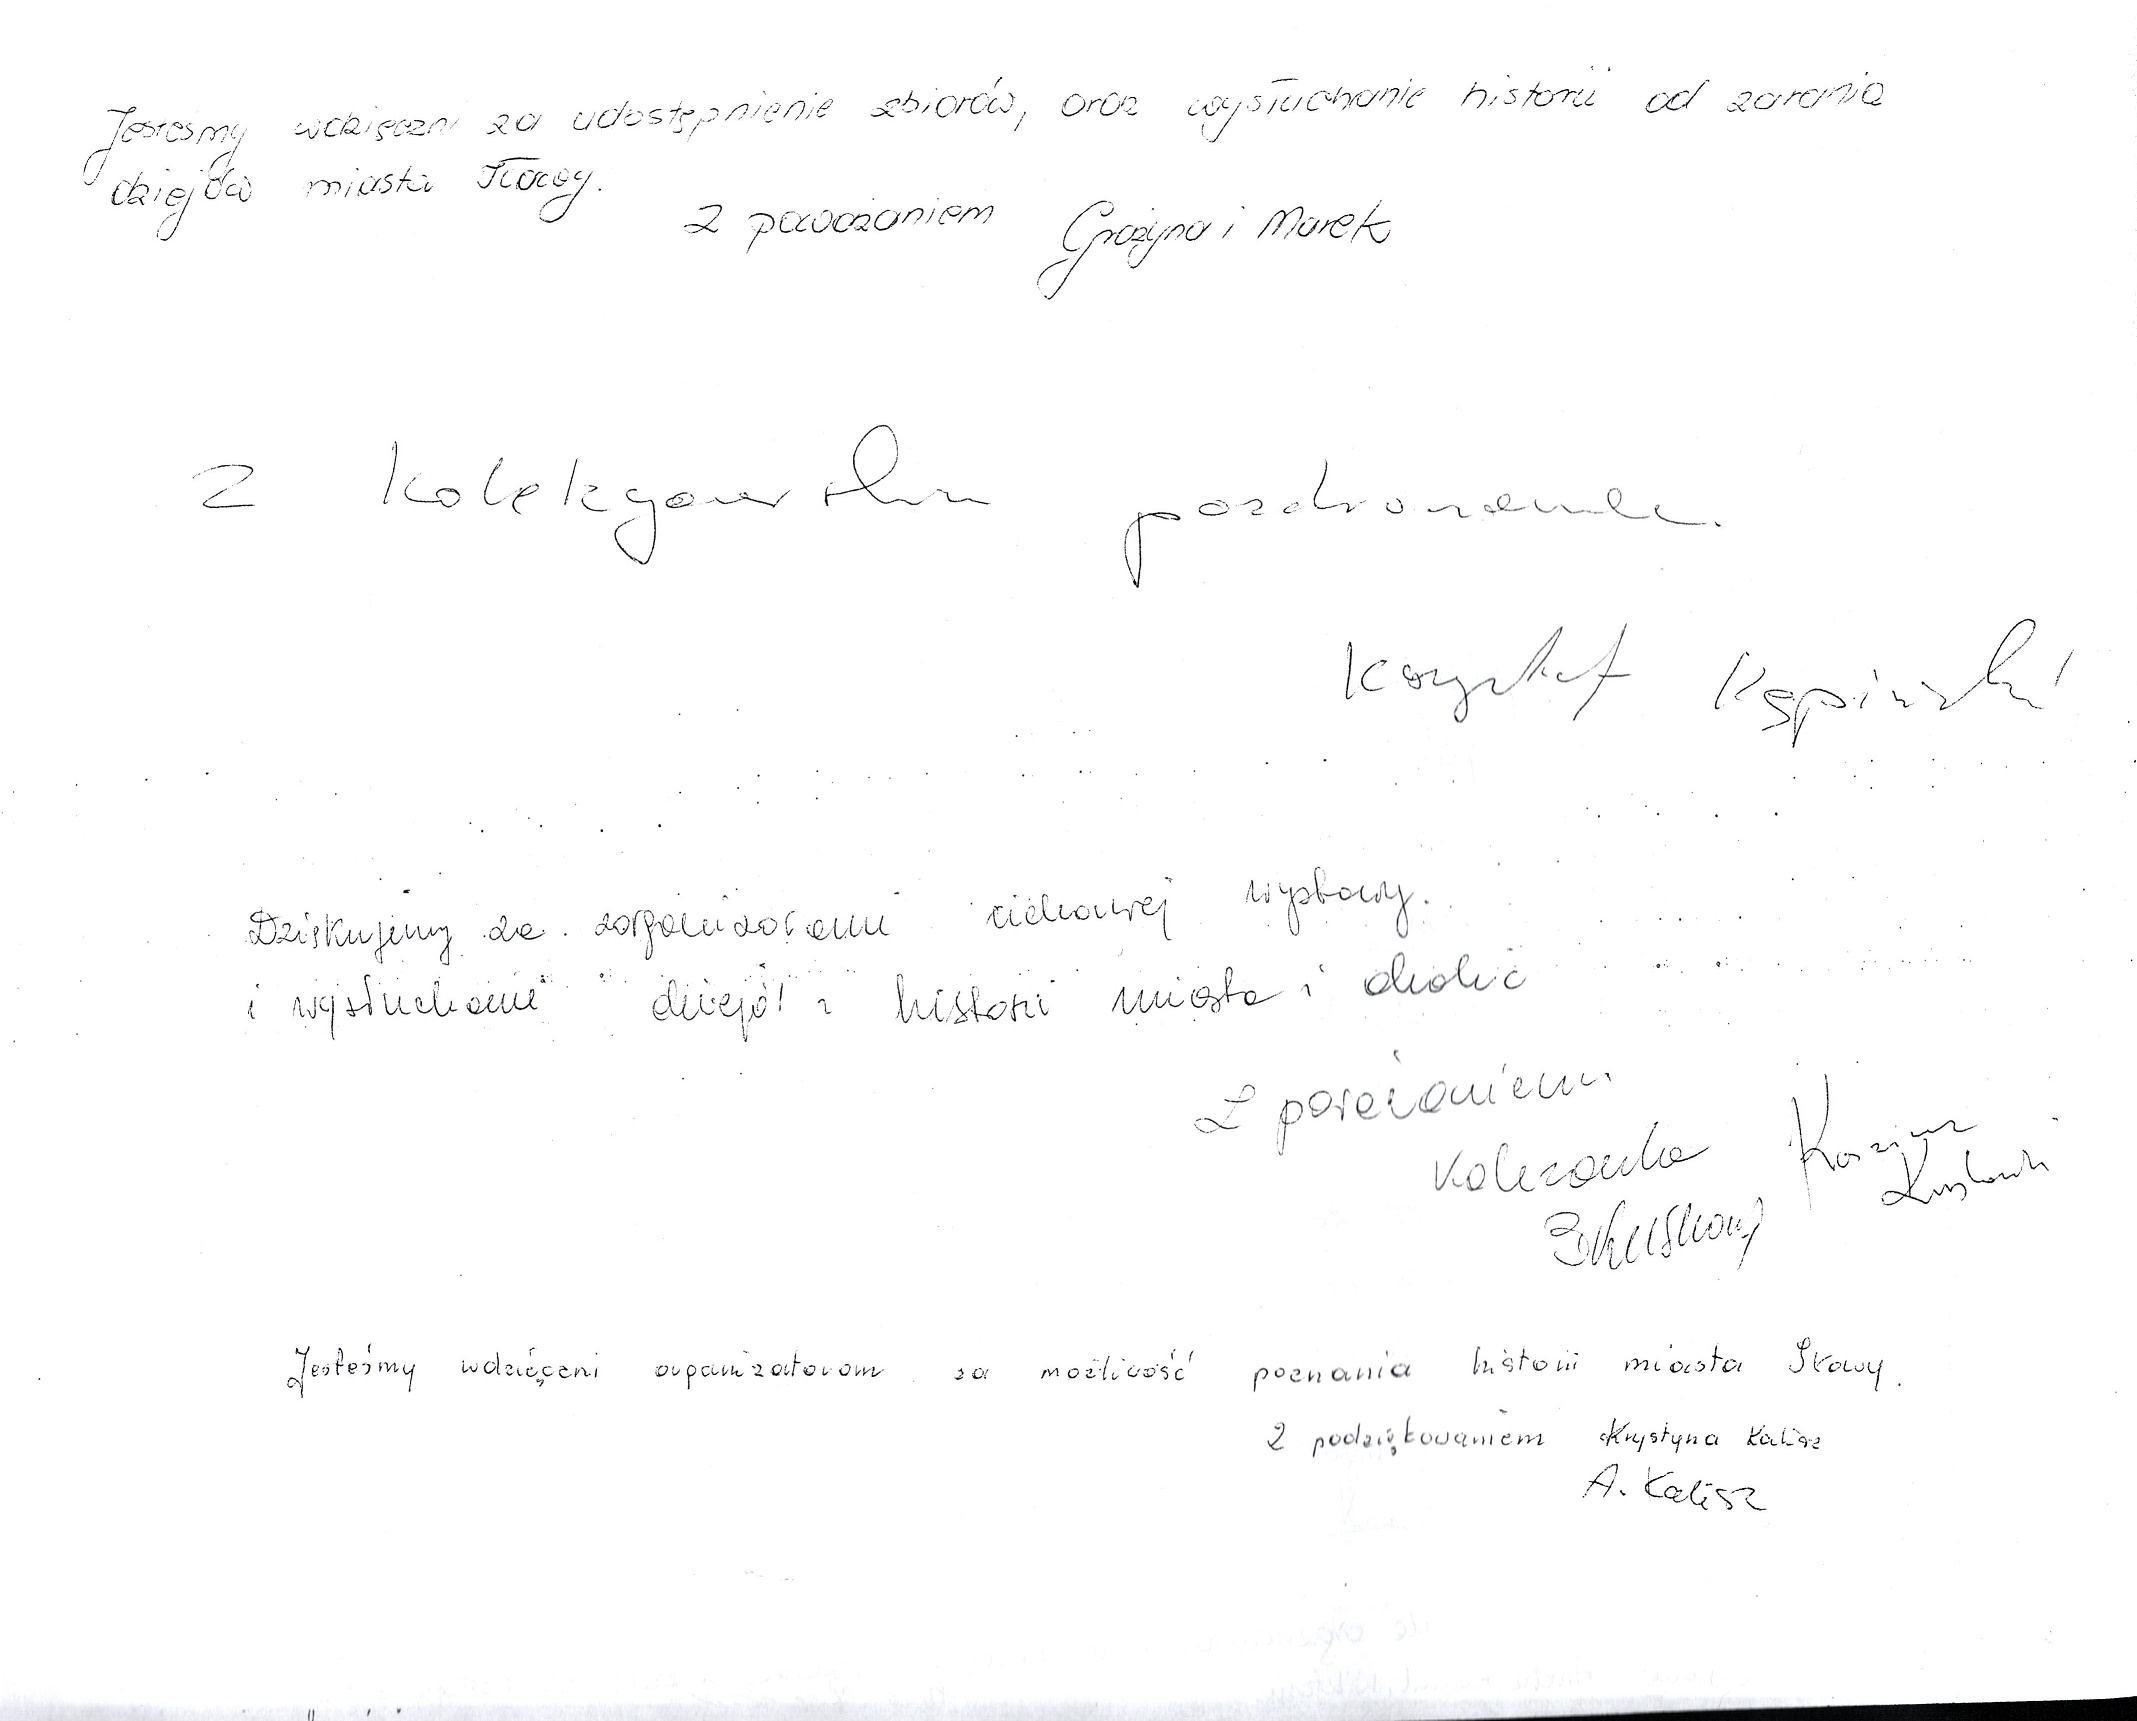 Jesteśmy wdzięczni za udostępnienie zbiorów, oraz wysłuchanie historii od zarania
dziejów miasta Iławy.
Z poważaniem Grażyna i Marek
Z kolekcjonerskim pozdrowieniem.
Krzysztof Kępiński
Dziękujemy za zorganizowanie ciekawej wystawy.
i wysłuchanie dziejów i historii miasta i okolic
Z poważaniem
Koleżanka Kazimierz
Jesteśmy wdzięczni organizatorom za możliwość poznania historii miasta Iławy.
Z podziękowaniem Krystyna Kalisz
A. Kalisz